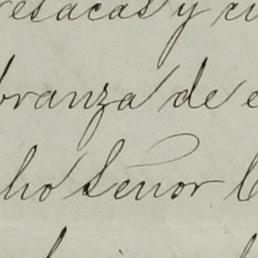 resacas y
branza de
ho Señor